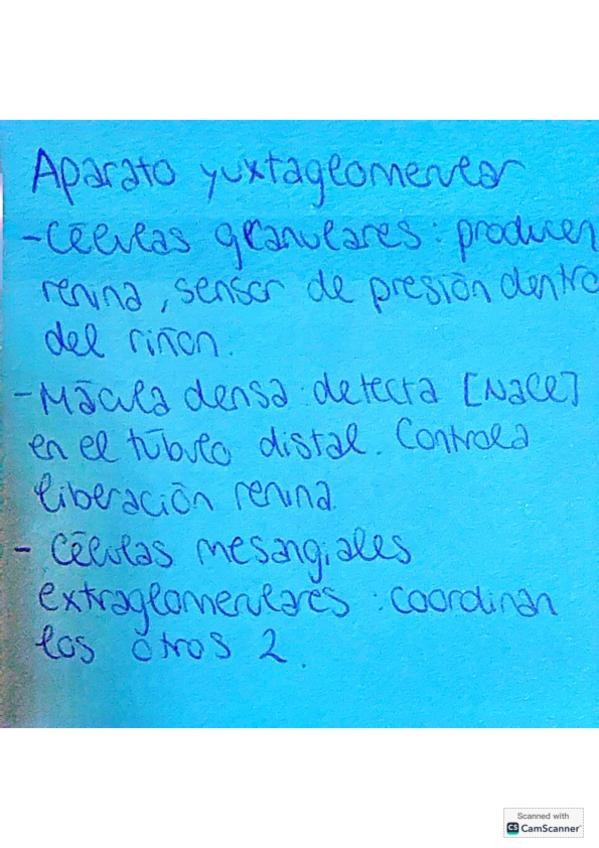 Aparato yuxtaglomerular
- Células granulares: producen
renina, sensor de presión dentro
del riñon.
- Mácula densa: detecta [NaCl]
en el túbulo distal. Controla
liberación renina.
- Células mesangiales
extraglomerulares: coordinan
los otros 2.
Scanned with
CS CamScanner